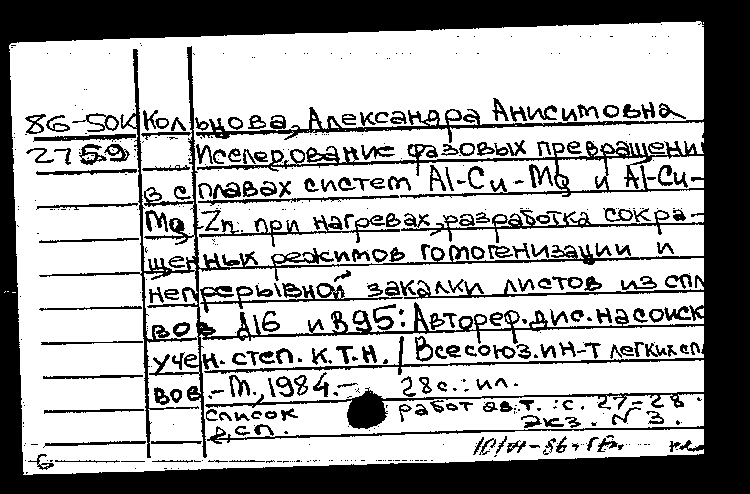 86-50к Кольцова, Александра Анисимовна
2759 Исследование фазовых превращени
в сплавах систем Al-Cu-Mg и Al-Cu-
Mg-Zn при нагревах, разработка сокра-
щенных режимов гомогенизации и
непрерывной закалки листов из спл
вов Д16 и В95: Автореф. дис. на соиск
учен. степ. к.т.н. / Всесоюз. ин-т легких спл
вов. - М., 1984. - 28 с.: ил.
Список работ авт.: с. 27-28.
Дсп. Экз. N 3.
6